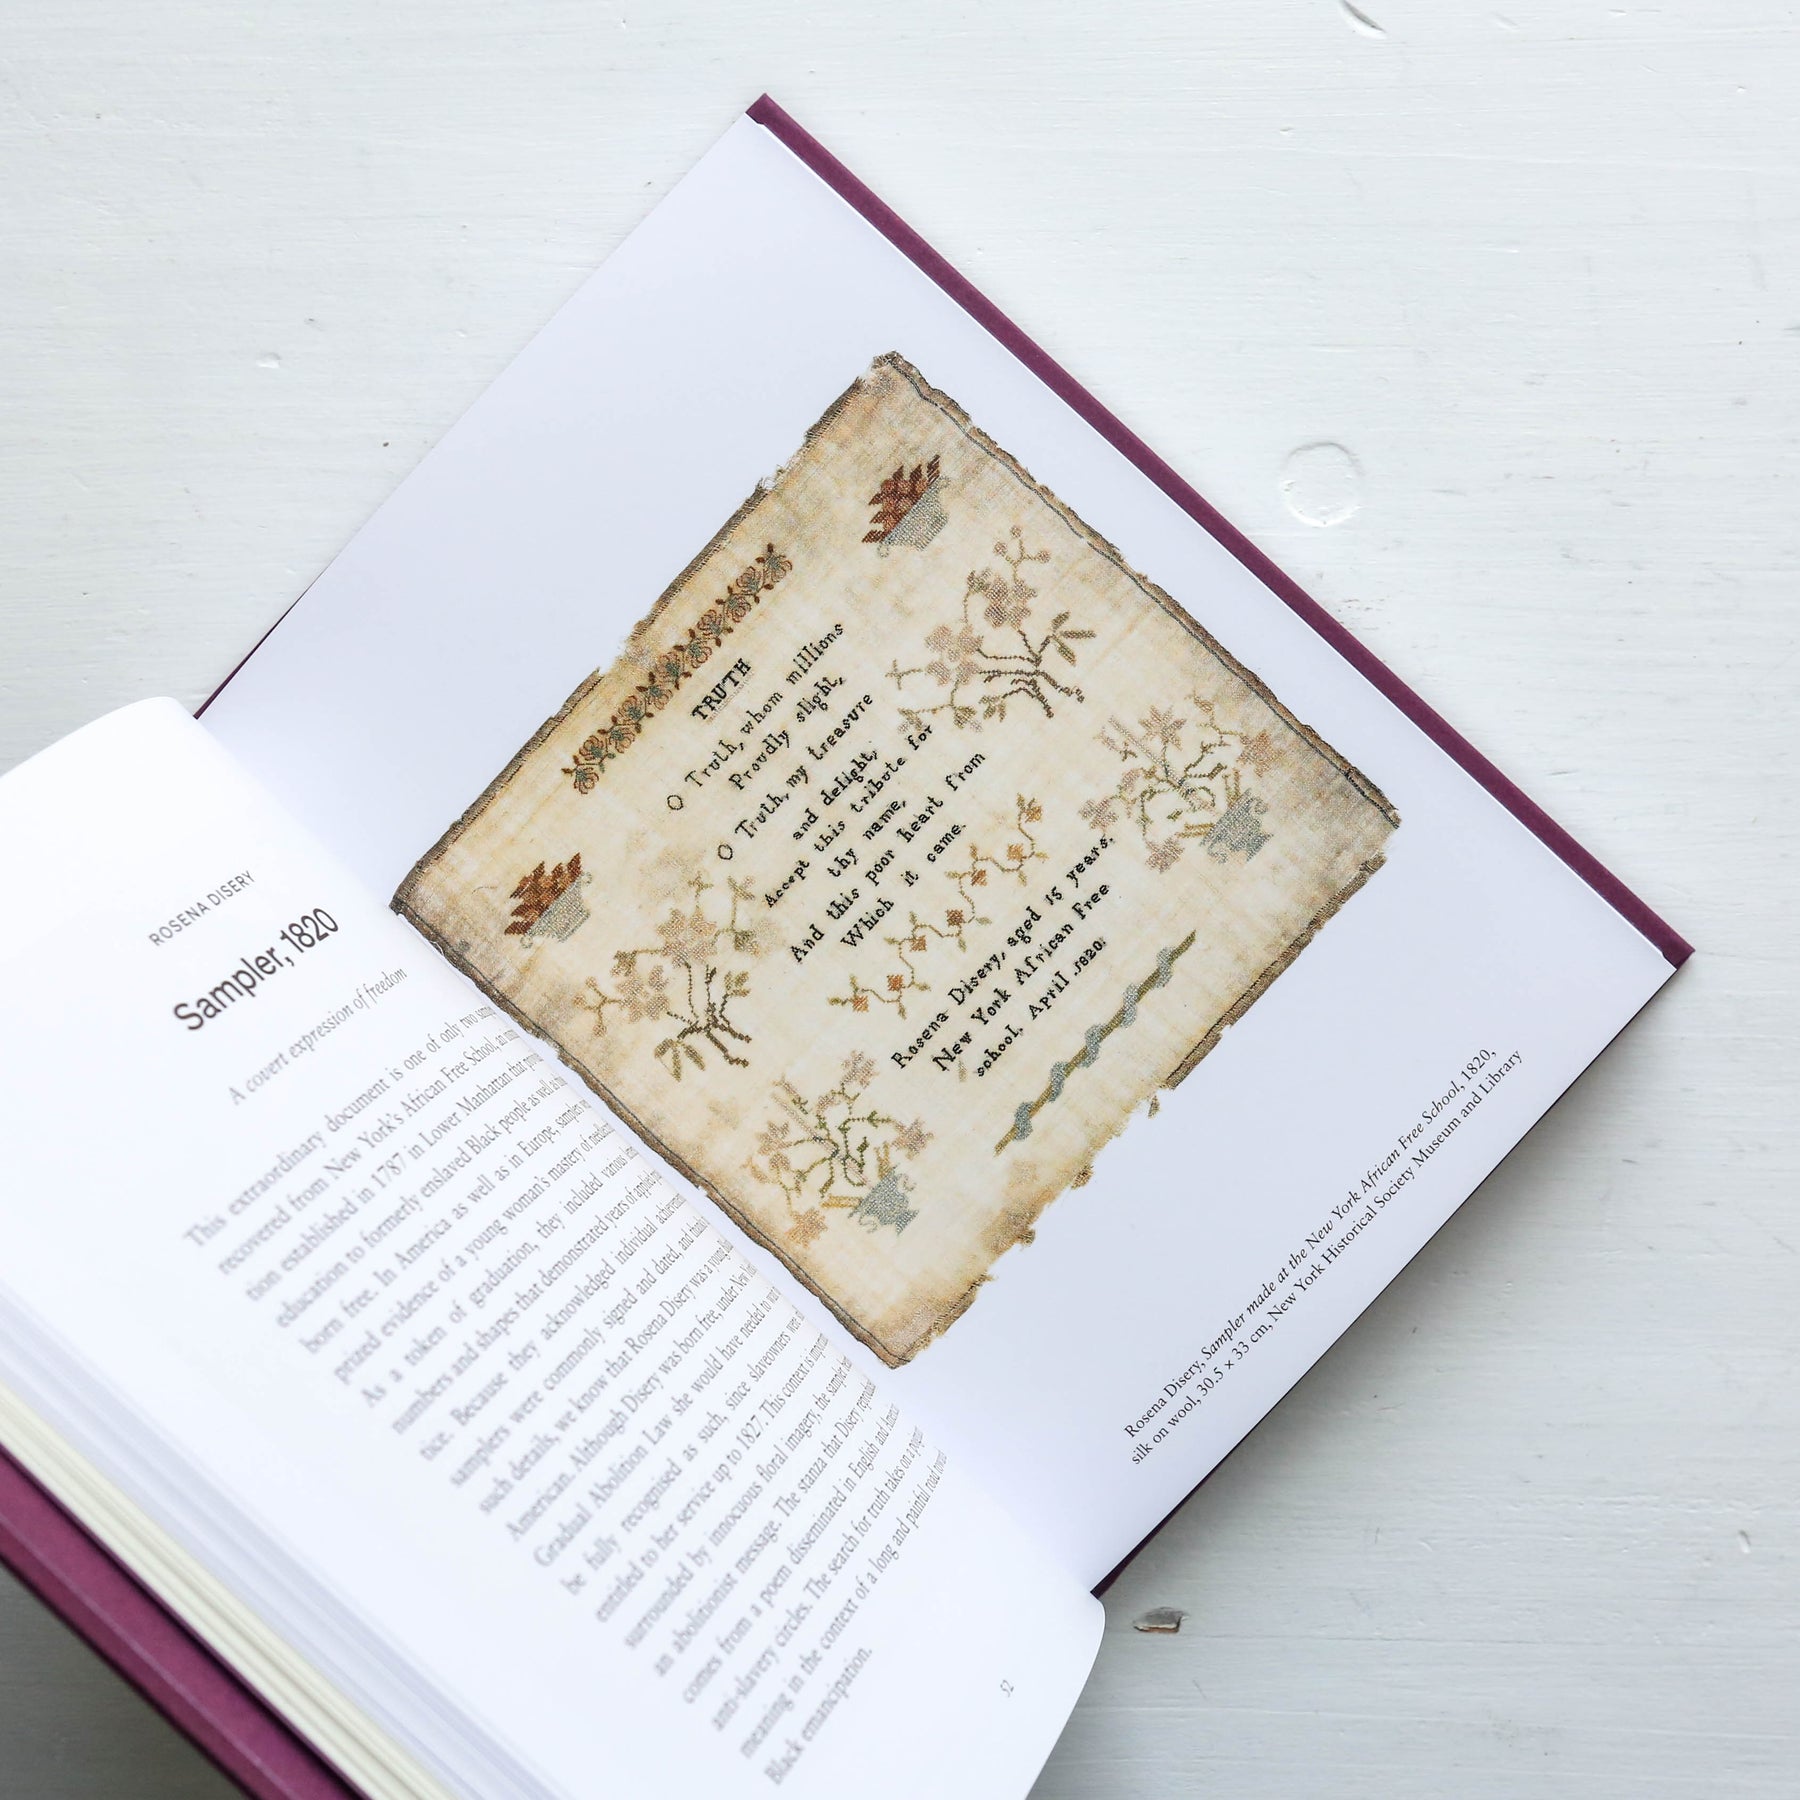 ROSENA DISERY
Sampler, 1820
A covert expression of freedom
This extraordinary document is one of only two
recovered from New York's African Free School, an
tion established in 1787 in Lower Manhattan that
education to formerly enslaved Black people as well as
born free. In America as well as in Europe, samplers
prized evidence of a young woman's mastery of
As a token of graduation, they included various
numbers and shapes that demonstrated years of
tice. Because they acknowledged individual
samplers were commonly signed and dated, and
such details, we know that Rosena Disery was a young
American. Although Disery was born free, under New
Gradual Abolition Law she would have needed to
be fully recognised as such, since slaveowners were
entitled to her service up to 1827. This context is
surrounded by innocuous floral imagery, the sampler
an abolitionist message. The stanza that Disery
comes from a poem disseminated in English and
anti-slavery circles. The search for truth takes on a
meaning in the context of a long and painful road
Black emancipation.
52
TRUTH
O Truth, whom millions
Proudly slight,
O Truth, my treasure
and delight,
Accept this tribute for
thy name,
And this poor heart from
Which it came.
Rosena Disery, aged 15 years.
New York African Free
school. April .1820.
Rosena Disery, Sampler made at the New York African Free School, 1820,
silk on wool, 30.5 × 33 cm, New York Historical Society Museum and Library